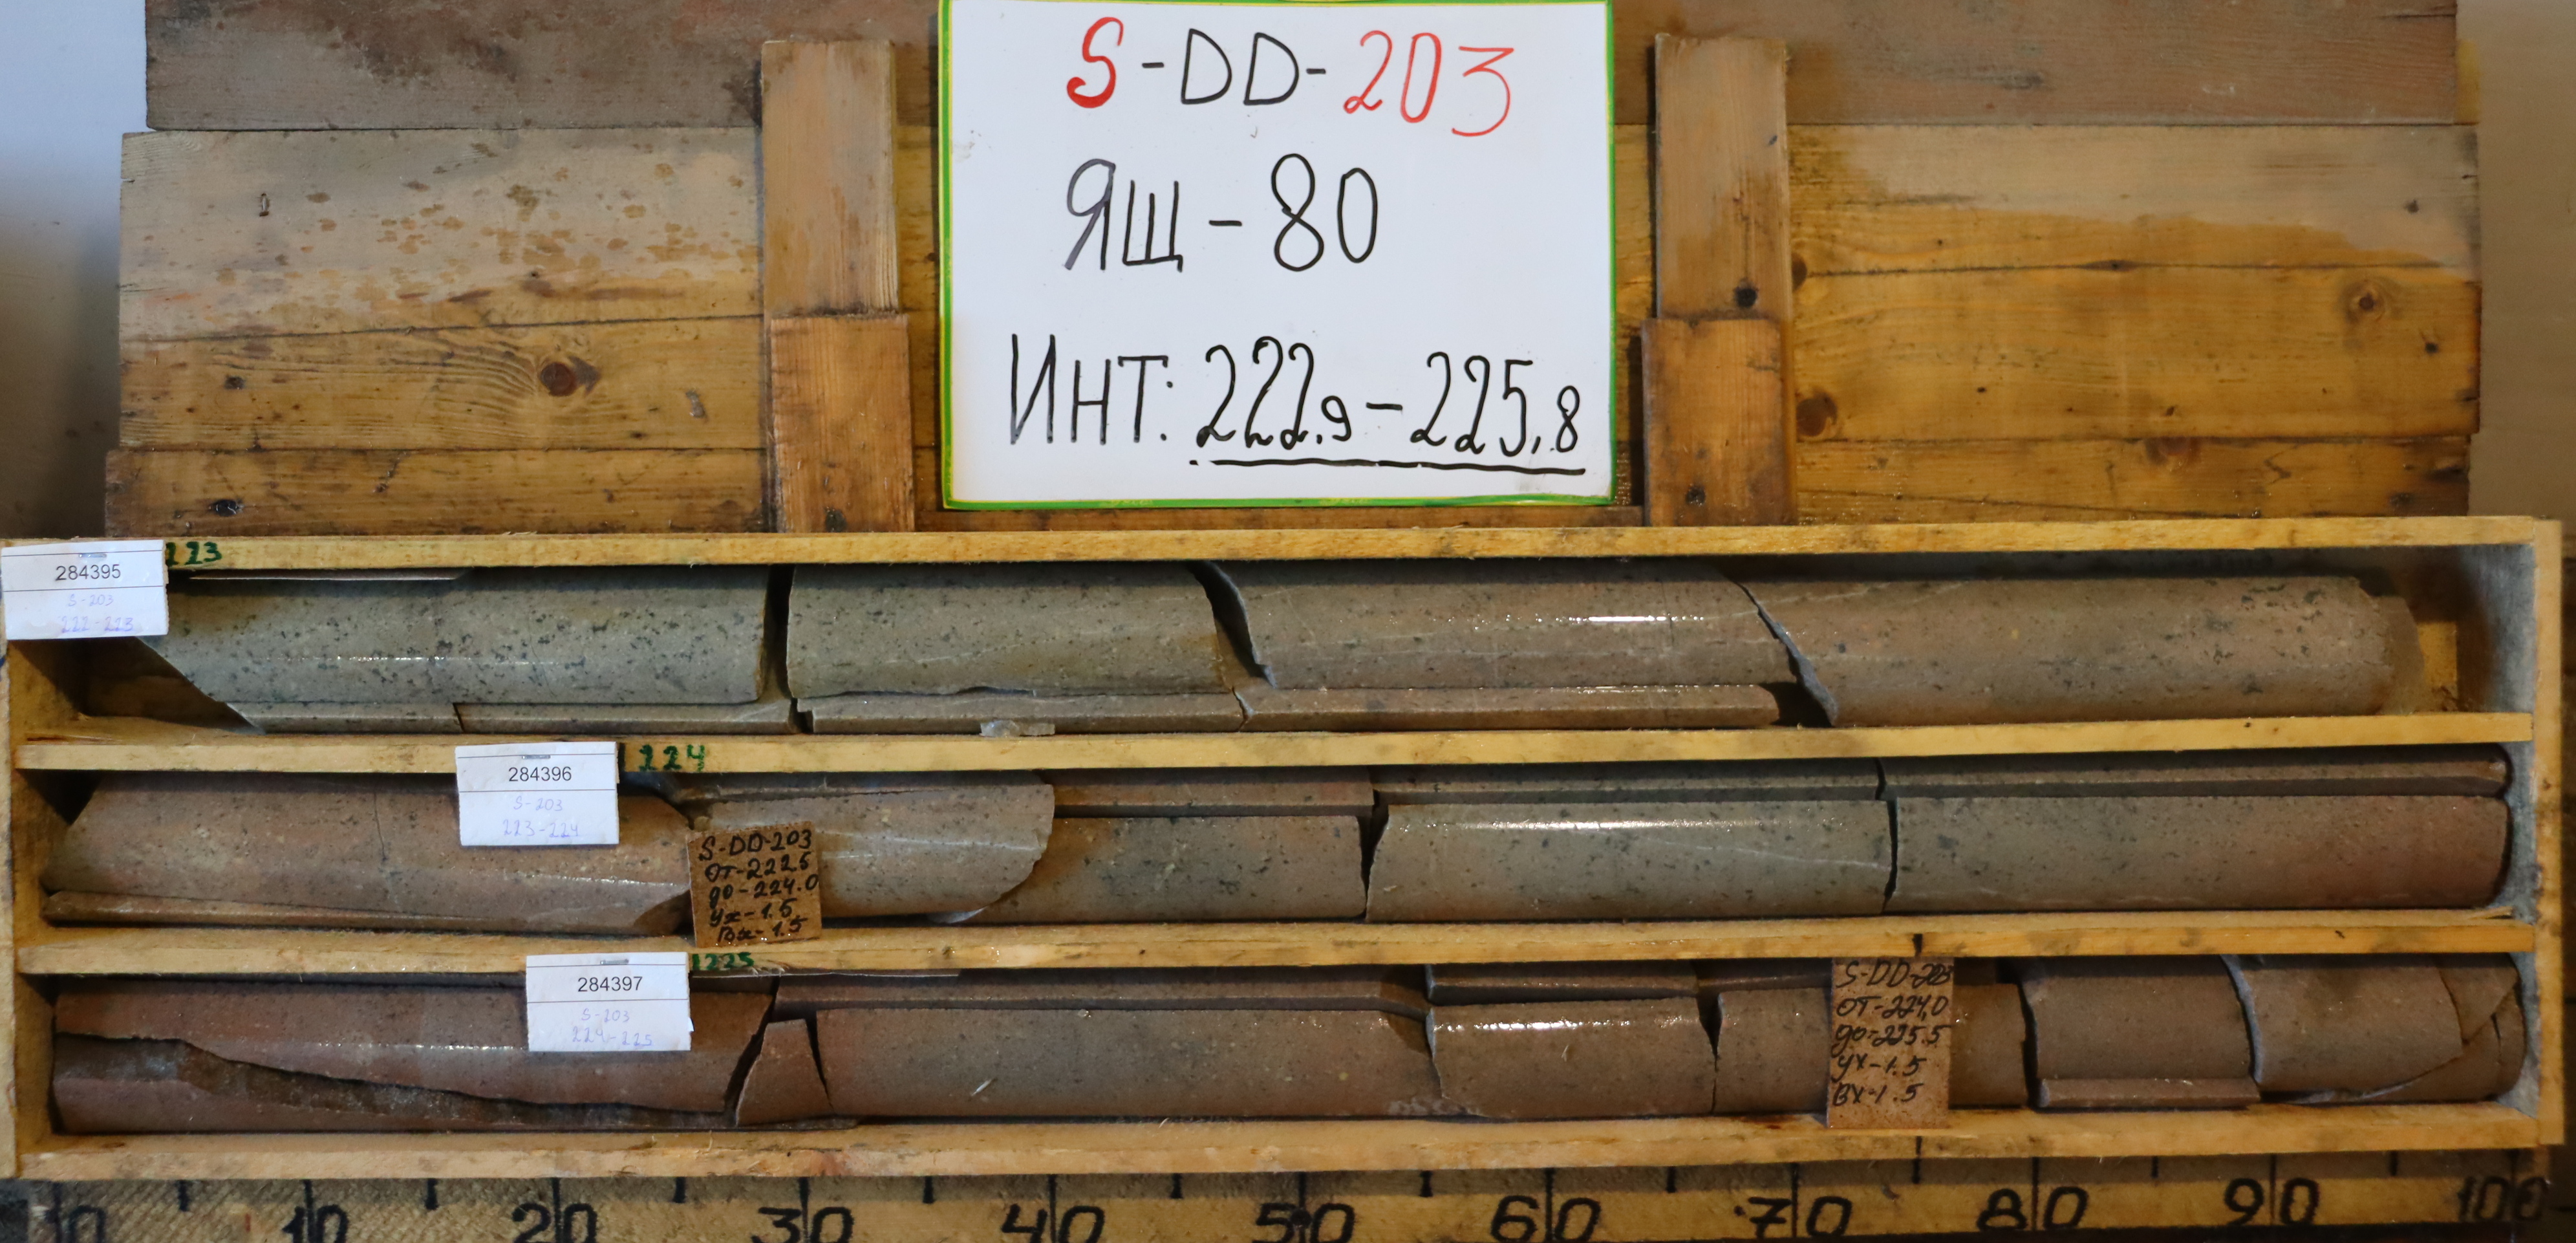 S-DD-203
ЯЩ-80
ИНТ: 222.9-225,8
223
284395
S-203
222-223
224
284396
S-203
223-224
S-DD-203
от-222.5
до-224.0
Ух-1.5
Вх-1.5
225
284397
S-203
224-225
S-DD-203
от-224,0
до-225.5
Ух-1.5
Вх-1.5
0 10 20 30 40 50 60 70 80 90 100